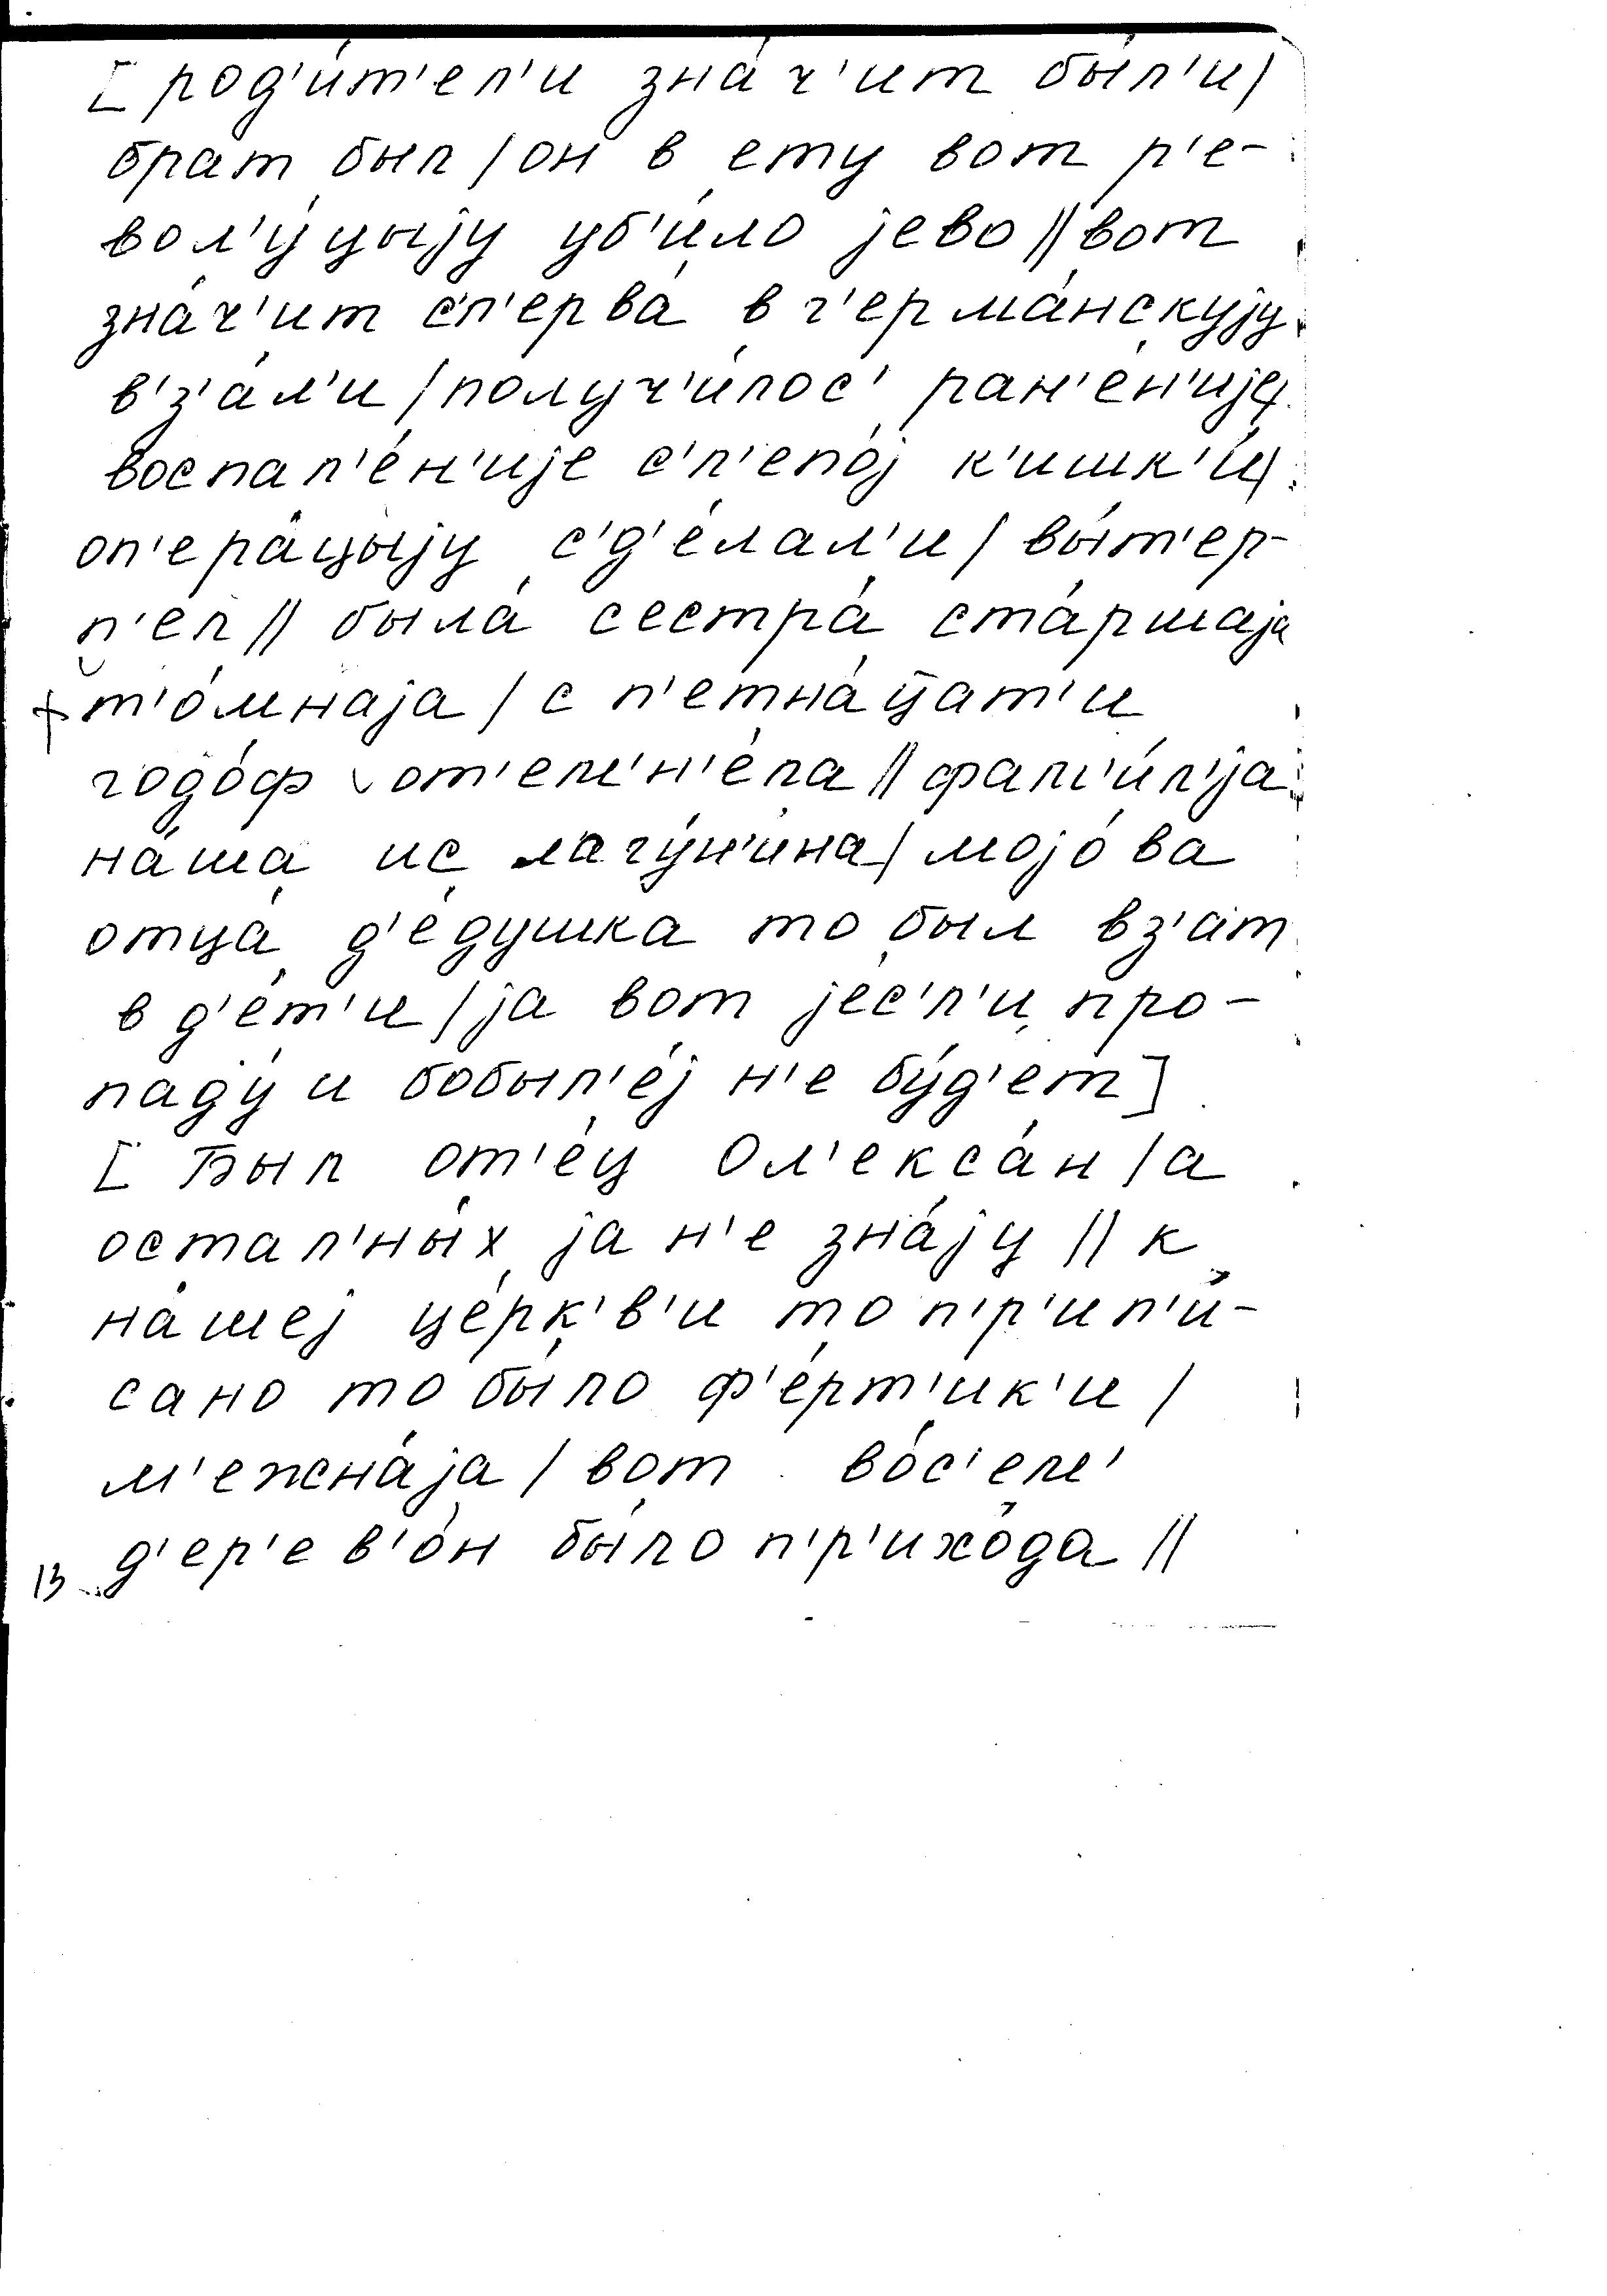 [ род'и́т'ел'и зна́ч'ит бы́л'и/
брат был / он в ету вот р'е-
вол'у́цыjу уб'и́ло jево // вот
зна́ч'ит с'п'ерва́ в г'ерма́нскуjу
в'з'а́л'и / получ'и́лос' ран'е́н'иjе/
воспал'е́н'иjе с'л'епо́j к'ишк'и́/
оп'ера́цыjу с'д'е́лал'и / вы́т'ер-
п'ел // была́ сестра́ ста́ршаjа
т'о́мнаjа / с п'етна́цат'и
годо́ф от'ем'н'е́ла // фам'и́л'jа
на́ша ис лагу́н'ина / моjо́ва
отца́ д'е́душка то был вз'а́т
в д'е́т'и / jа вот jе́с'л'и про-
паду́ и бобыл'е́j н'е бу́д'ет ]
[ Был от'е́ц Ол'екса́н / а
остал'ны́х jа н'е зна́jу // к
на́шеj це́рк'в'и то п'р'ип'и́-
сано то бы́ло ф'е́рт'ик'и /
м'ежна́jа / вот во́с'ем'
д'ер'ев'о́н бы́ло п'р'ихо́да //
13